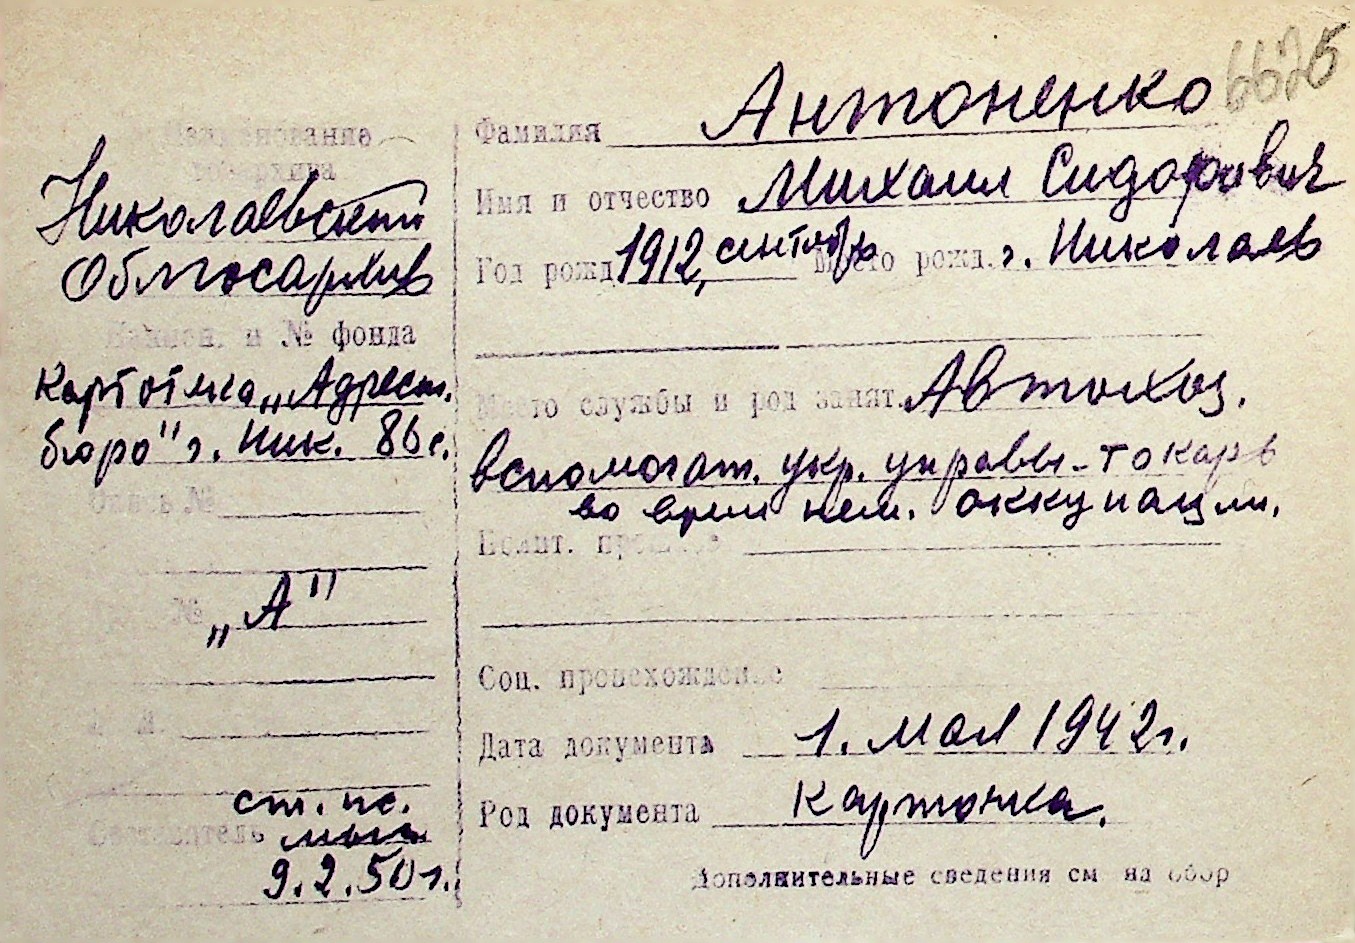 6625
Наименование
госархива
Николаевский
Облгосархив
Наимен. и № фонда
Картотека „Адресн.
бюро" г. Ник. 86 с.
Опись №
„А"
ст. н.с.
Составитель
9.2.50 г.
Фамилия Антоненко
Имя и отчество Михаил Сидорович
Год рожд 1912, сентябрь Место рожд. г. Николаев
Место службы и род занят. Автохоз.
вспомогат. укр. управы - токарь
во время нем. оккупации.
Полит. прошлое
Соц. происхождение
Дата документа 1. мая 1942 г.
Род документа Картонка.
Дополнительные сведения см на обор